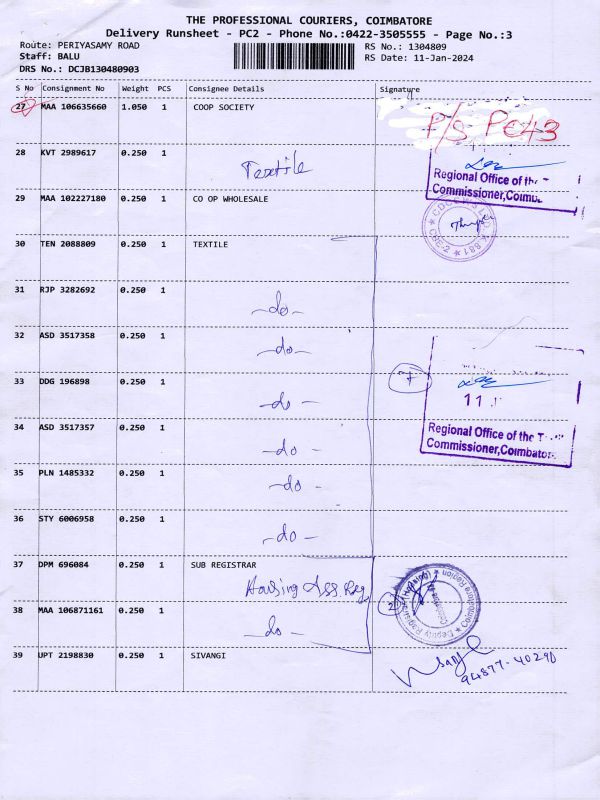 THE PROFESSIONAL COURIERS, COIMBATORE
Delivery Runsheet - PC2 - Phone No.:0422-3505555 - Page No.:3
Route: PERIYASAMY ROAD
Staff: BALU
DRS No.: DCJB130480903
RS No.: 1304809
RS Date: 11-Jan-2024
S No Consignment No Weight PCS Consignee Details Signature
27 MAA 106635660 1.050 1 COOP SOCIETY
P/S PC43
28 KVT 2989617 0.250 1 Textile
Regional Office of the
Commissioner,Coimb
29 MAA 102227180 0.250 1 CO OP WHOLESALE
CBE-2 ★ 881 ★
30 TEN 2088809 0.250 1 TEXTILE
31 RJP 3282692 0.250 1 -do-
32 ASD 3517358 0.250 1 -do-
33 DDG 196898 0.250 1 -do-
7
11
34 ASD 3517357 0.250 1 -do-
Regional Office of the T
Commissioner,Coimbator
35 PLN 1485332 0.250 1 -do-
36 STY 6006958 0.250 1 -do-
37 DPM 696084 0.250 1 SUB REGISTRAR
Housing Ass Reg
2
Deputy Registrar (Housing) ★ Coimbatore Region ★
38 MAA 106871161 0.250 1 -do-
39 UPT 2198830 0.250 1 SIVANGI
94877-40290